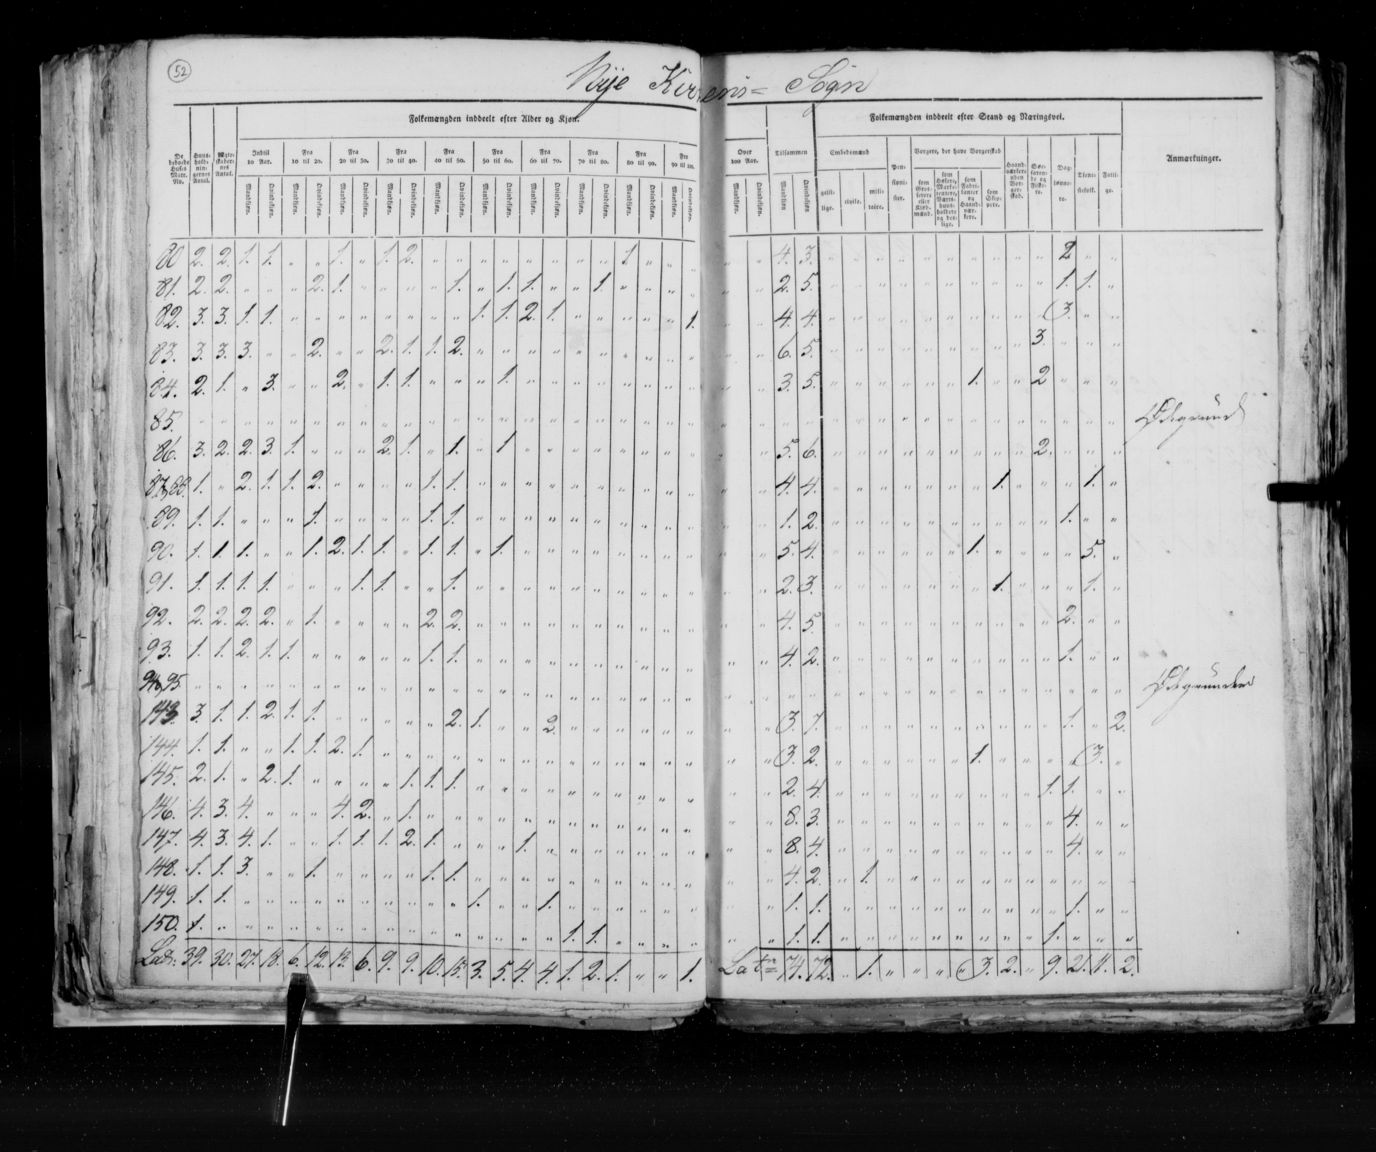 52
Nye Kirkens= Sogn
Folkemængden inddeelt efter Alder og Kjøn.
Folkemængden inddeelt efter Stand og Næringsvei.
Anmærkninger.
Indtil 10 Aar. Fra 10 til 20. Fra 20 til 30. Fra 30 til 40. Fra 40 til 50. Fra 50 til 60. Fra 60 til 70. Fra 70 til 80. Fra 80 til 90. Fra 90 til 100. Over 100 Aar. Tilsammen Embedsmænd Borgere, der have Borgerskab
Mandkjøn. Qvindekjøn. geistlige. civile. militaire.
80 2. 2. 1. 1. „ „ 1. „ 1. 2. „ „ „ „ „ „ „ „ 1 „ „ „ „ „ 4. 3. „ „ „ „ „ „ „ „ „ „ 2 „ „
81. 2. 2. „ „ „ 2. 1. „ „ „ „ 1. „ 1. 1. „ „ 1. „ „ „ „ „ „ 2. 5. „ „ „ „ „ „ „ „ „ „ 1. 1. „
82. 3. 3. 1. 1. „ „ „ „ „ „ „ „ 1. 1. 2. 1. „ „ „ „ „ 1. „ „ 4. 4. „ „ „ „ „ „ „ „ „ „ 3. „ „
83. 3. 3. 3. „ „ 2. „ „ 2. 1. 1. 2. „ „ „ „ „ „ „ „ „ „ „ „ 6. 5. „ „ „ „ „ „ „ „ „ 3. „ „ „
84. 2. 1. „ 3. „ „ 2. „ 1. 1. „ „ „ 1. „ „ „ „ „ „ „ „ „ „ 3. 5. „ „ „ „ „ „ 1. „ „ 2 „ „ „
85. Ødegrund
86. 3. 2. 2. 3. 1. „ „ „ 2. 1. „ 1. „ 1 „ „ „ „ „ „ „ „ „ „ 5. 6. „ „ „ „ „ „ „ „ „ 2. „ „ „
87,88. 1. „ 2. 1. 1. 2. „ „ „ „ 1. 1. „ „ „ „ „ „ „ „ „ „ „ „ 4. 4. „ „ „ „ „ „ „ 1. „ „ „ 1. „
89. 1. 1. „ „ „ 1. „ „ „ „ 1. 1. „ „ „ „ „ „ „ „ „ „ „ „ 1. 2. „ „ „ „ „ „ „ „ „ „ 1. „ „
90. 1. 1. 1. „ „ 1. 2. 1. 1. „ 1. 1. „ 1. „ „ „ „ „ „ „ „ „ „ 5. 4. „ „ „ „ „ „ 1. „ „ „ „ 5. „
91. 1. 1. 1. 1. „ „ „ 1. 1. „ „ 1. „ „ „ „ „ „ „ „ „ „ „ „ 2. 3. „ „ „ „ „ „ „ 1. „ „ „ 1. „
92. 2. 2. 2. 2. „ 1. „ „ „ „ 2. 2. „ „ „ „ „ „ „ „ „ „ „ „ 4. 5. „ „ „ „ „ „ „ „ „ „ 2. „ „
93. 1. 1. 2. 1. 1. „ „ „ „ „ 1. 1. „ „ „ „ „ „ „ „ „ „ „ „ 4. 2. „ „ „ „ „ „ „ „ „ „ 1. „ „
94,95 Ødegrunden
143. 3. 1. 1. 2. 1. 1. „ „ „ „ „ 2. 1. „ „ 2. „ „ „ „ „ „ „ „ 3. 7. „ „ „ „ „ „ „ „ „ „ 1. „ 2.
144. 1. 1. „ „ 1. 1. 2. 1. „ „ „ „ „ „ „ „ „ „ „ „ „ „ „ „ 3. 2. „ „ „ „ „ „ 1. „ „ „ „ 3. „
145. 2. 1. „ 2. 1. „ „ „ „ 1. 1. 1. „ „ „ „ „ „ „ „ „ „ „ „ 2. 4. „ „ „ „ „ „ „ „ „ 1. 1. „ „
146. 4. 3. 4. „ „ „ 4. 2. „ 1. „ „ „ „ „ „ „ „ „ „ „ „ „ „ 8. 3. „ „ „ „ „ „ „ „ „ „ 4. „ „
147. 4. 3. 4. 1. „ „ 1. 1. 1. 2. 1. „ „ „ 1. „ „ „ „ „ „ „ „ „ 8. 4. „ „ „ „ „ „ „ „ „ „ 4. „ „
148. 1. 1. 3. „ „ 1. „ „ „ „ 1. 1. „ „ „ „ „ „ „ „ „ „ „ „ 4. 2. „ 1. „ „ „ „ „ „ „ „ „ „ „
149. 1. 1. „ „ „ „ „ „ „ „ „ „ 1. „ „ 1. „ „ „ „ „ „ „ „ 1. 1. „ „ „ „ „ „ „ „ „ „ 1. „ „
150. 1. „ „ „ „ „ „ „ „ „ „ „ „ „ „ „ 1. 1. „ „ „ „ „ „ 1. 1. „ „ „ „ „ „ „ „ „ 1. „ „ „
39. 30. 27. 18. 6. 12. 13. 6. 9. 9. 10. 15. 3. 5. 4. 4. 1. 2. 1. „ „ 1. 74. 72. „ 1. „ „ „ „ 3. 2. „ 9. 21. 11. 2.